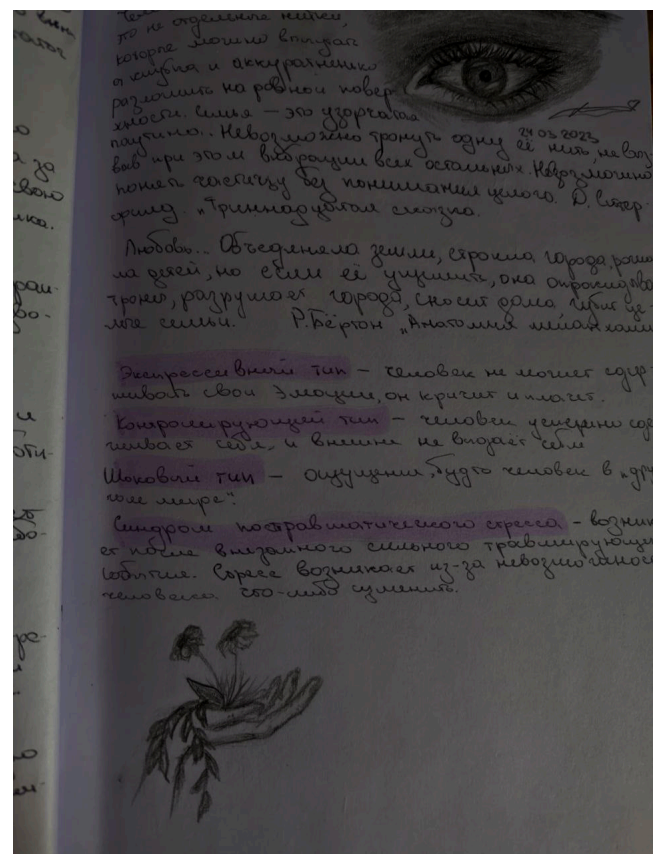 то не отдельные нитки,
которые можно вытягать
из клубка и аккуратненько
разложить на ровной повер-
хности. Семья — это узорчатая
24.03.2023
паутина.. Невозможно тронуть одну её нить, не выз-
вав при этом вибрации всех остальных. Невозможно
понять частичку без понимания целого. Д. Сеттер-
филд. „Триннадцатая сказка.
Любовь... Объеденяла земли, строила города, рожа
ла детей, но если её ущемить, она опрокидыва
троны, разрушает города, сносит дома губит це-
лые семьи. Р. Бёртон „Анатомия меланхолии
Экспрессивный тип – человек не может сдер-
живать свои эмоции, он кричит и плачет.
Контролирующий тип – человек усерено сде
живает себя, и внешне не выдаёт себя
Шоковый тип – ощущение, будто человек в „дру
гом мире".
Синдром постравматического стресса – возник
ет после внезапного сильного травмирующи
события. Стресс возникает из-за невозможнос
человека что-либо изменить.